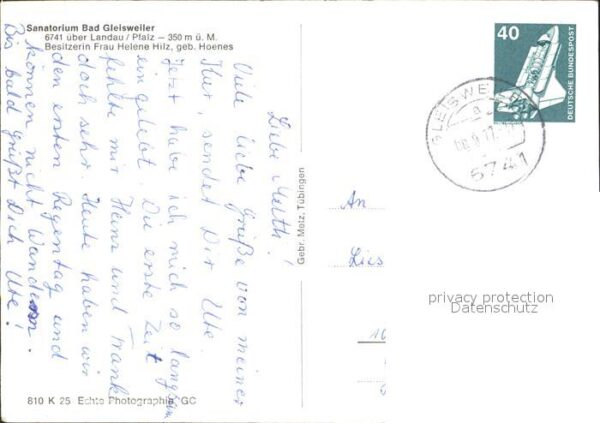 Sanatorium Bad Gleisweiler
6741 über Landau / Pfalz — 350 m ü. M.
Besitzerin Frau Helene Hilz, geb. Hoenes
Liebe
Viele liebe Grüße von meiner
Kur, sendet Dir Ute.
Jetzt habe ich mich so langsam
eingelebt. Die erste Zeit
fehlte mir Heinz und Frank
doch sehr. Heute haben wir
den ersten Regentag und
können nicht Wandern.
Bis bald grüßt Dich Ute!
Gebr. Metz, Tübingen
810 K 25 Echte Photographie GC
40
DEUTSCHE BUNDESPOST
GLEISWEILER
6741
An
Lies
privacy protection
Datenschutz